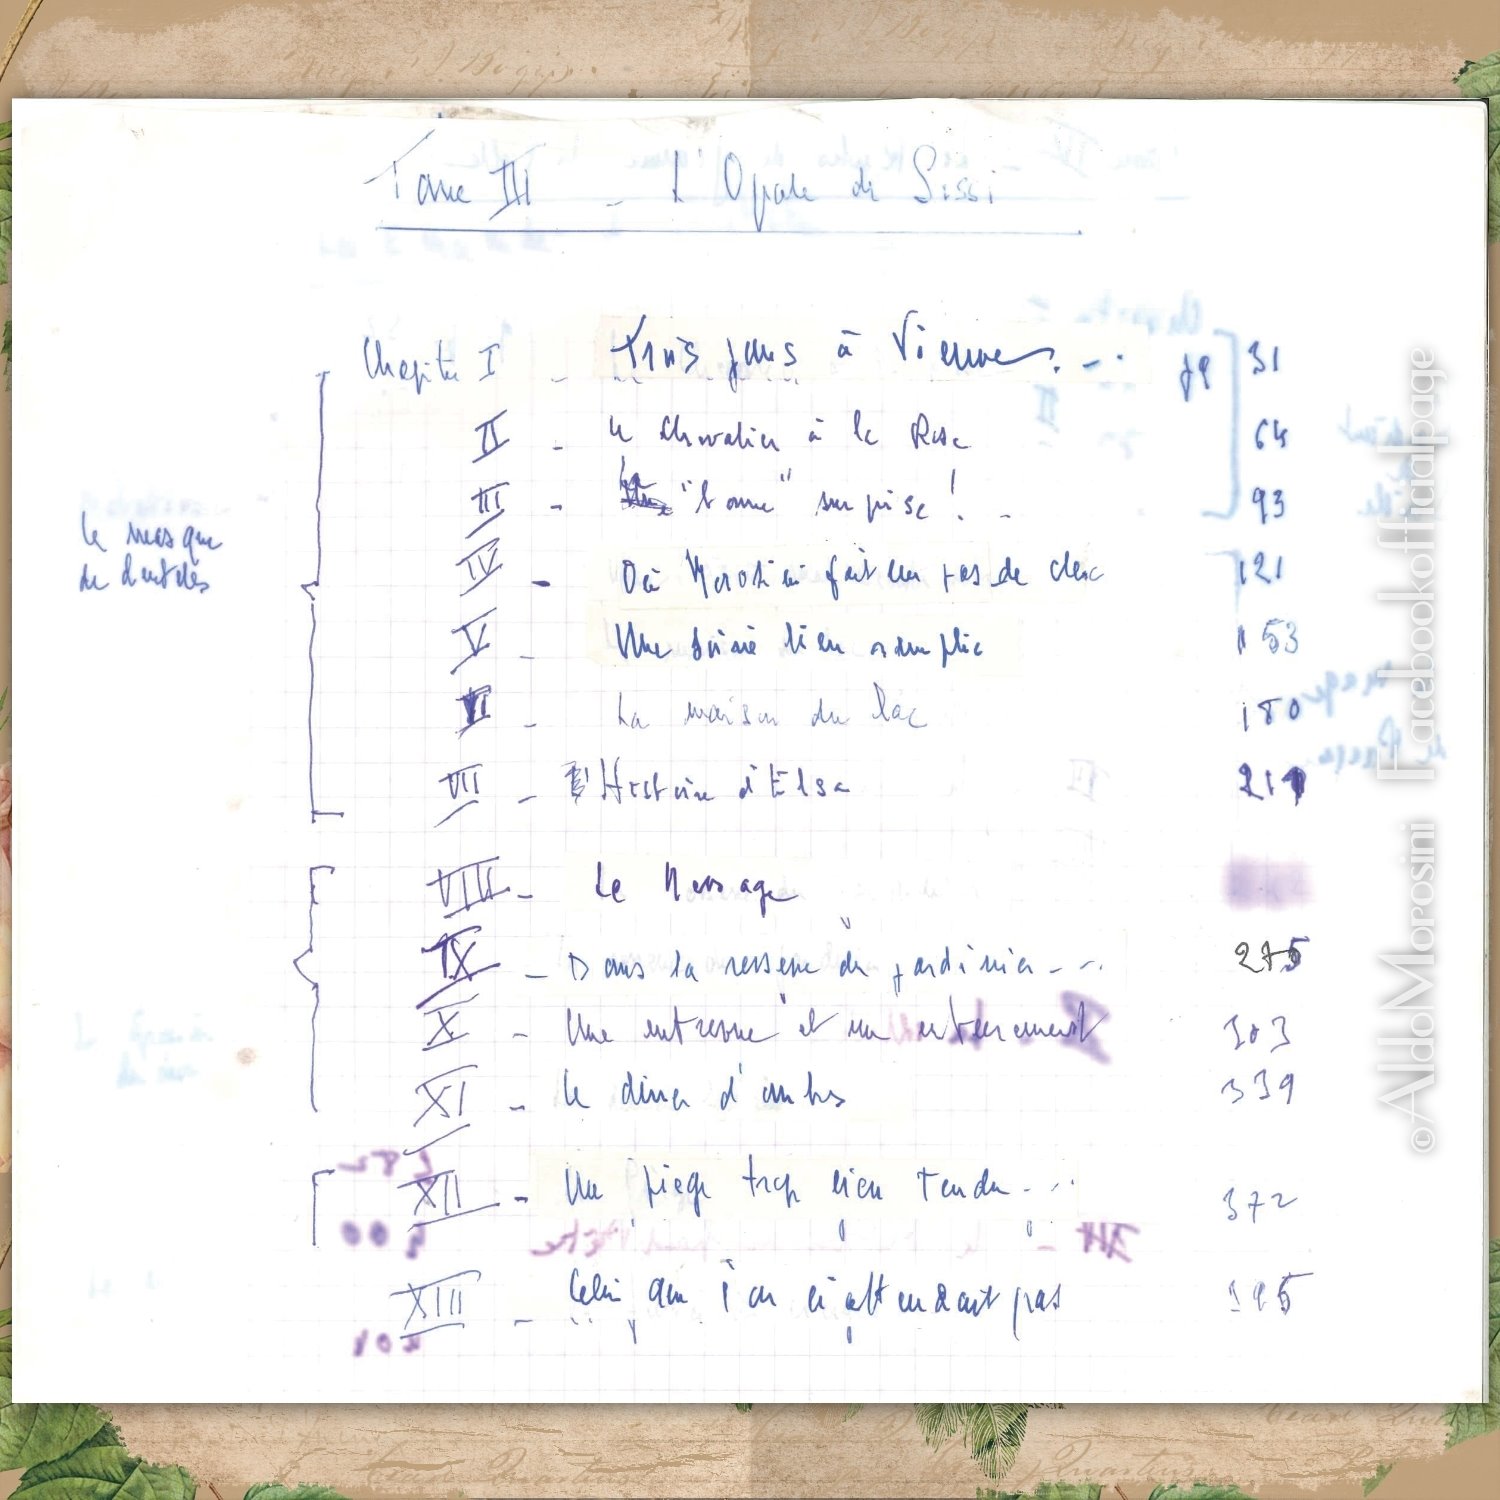 Tome III - L'Opale de Sissi
Chapitre I - Trois jours à Vienne... 31
II - Le Chevalier à la Rose 64
III - La "bonne" surprise!.. 93
IV - Où Morosini fait un pas de clerc 121
V - Une soirée bien remplie 153
VI - La maison du lac 180
VII - L'Histoire d'Elsa 211
Le masque
de dentelles
VIII - Le Message
IX - Dans la resserre du jardinier... 275
X - Une entrevue et un enterrement 303
XI - Le diner d'ombres 339
XII - Un piège trop bien tendu... 372
XIII - Celui que l'on n'attendait pas 395
©AldoMorosini Facebookofficialpage